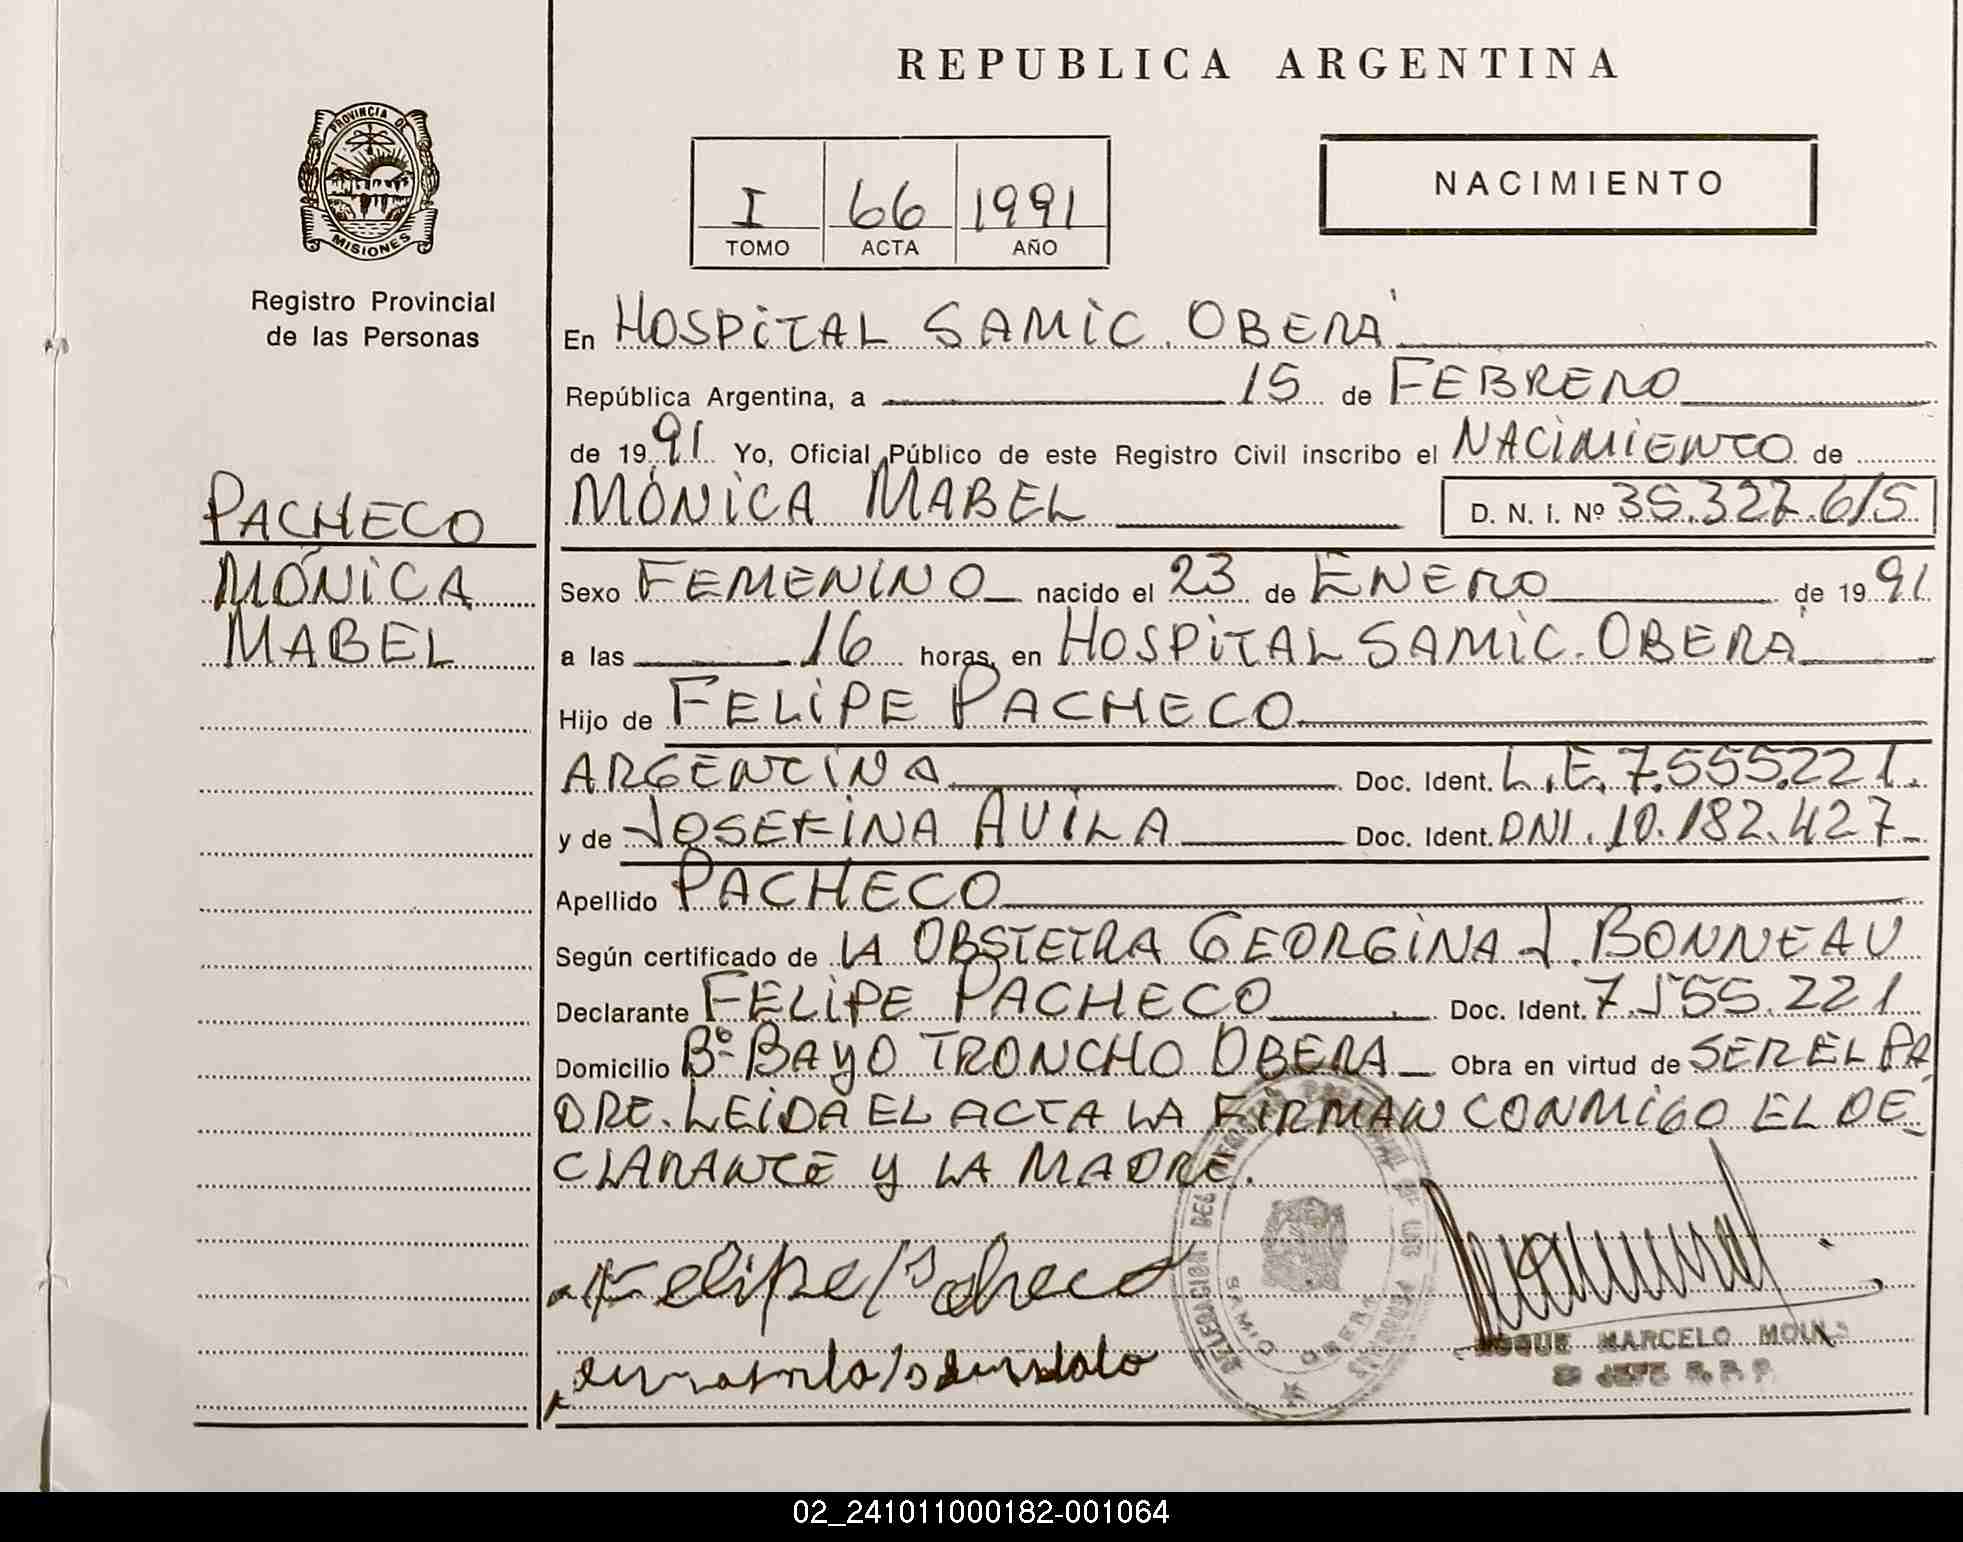 REPUBLICA ARGENTINA
PROVINCIA DE
MISIONES
Registro Provincial
de las Personas
I 66 1991
TOMO ACTA AÑO
NACIMIENTO
En HOSPITAL SAMIC. OBERÁ
República Argentina, a 15 de FEBRERO
de 1991 Yo, Oficial Público de este Registro Civil inscribo el NACIMIENTO de
PACHECO
MÓNICA
MABEL
MÓNICA MABEL D. N. I. Nº 35.327.615
Sexo FEMENINO nacido el 23 de ENERO de 1991
a las 16 horas, en HOSPITAL SAMIC. OBERÁ
Hijo de FELIPE PACHECO
ARGENTINA Doc. Ident. L.E. 7.555.221.
y de JOSEFINA AVILA Doc. Ident. DNI. 10.182.427
Apellido PACHECO
Según certificado de LA OBSTETRA GEORGINA J. BONNEAU
Declarante FELIPE PACHECO Doc. Ident. 7.555.221
Domicilio Bº BAYO TRONCHO OBERA Obra en virtud de SER EL PA
DRE. LEIDA EL ACTA LA FIRMAN CONMIGO EL DE_
CLARANTE Y LA MADRE.
Felipe Pacheco
DELEGACION DEL REGISTRO PROVINCIAL DE LAS PERSONAS
SAMIC OBERA
ROQUE MARCELO
JEFE R.P.P.
02_241011000182-001064